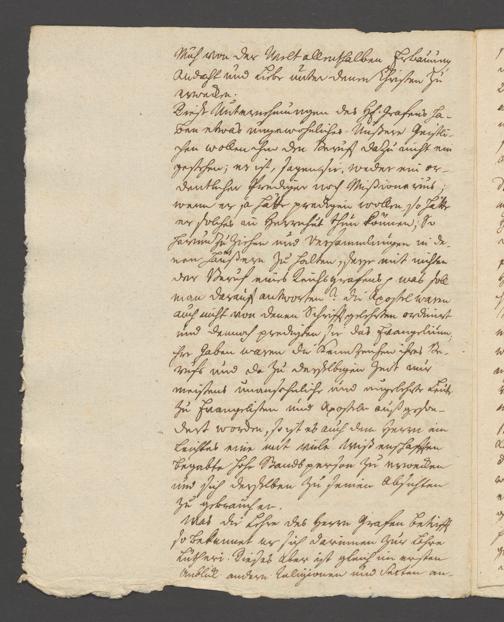 Muß von der Welt allenthalben Erbauung
Andacht und Liebe unter denen Christen zu
erwecken.
Diese Unternehmungen des H. Grafens ha-
ben etwas ungewöhnliches. Unsere Geistli-
chen wollen ihm den Beruf dazu nicht ein
gestehen; er ist, sagen sie, weder ein or-
dentlicher Prediger noch Missionarius;
wenn er ja hätte predigen wollen, so hätte
er solches in Herrnhut thun können; So
herum zu ziehen und Versammlungen in de-
nen Häußern zu halten, seye mit nichten
der Beruf eines Reichsgrafens, was soll
man darauf antworten? die Apostel waren
auch nicht von denen Schriftgelehrten ordinirt
und dennoch predigten sie das Evangelium,
ihre Gaben waren die Kennzeichen ihres Be-
rufs und da zu derselbigen Zeit nur
meistens unansehnliche und ungelehrte Leute
zu Evangelisten und Apostele außgeson-
dert worden, so ist es auch dem Herrn ein
leichtes eine mit viele Wissenschafften
begabte hohe Standsperson zu erwecken
und sich derselben zu seinen Absichten
zu gebrauchen.
Was die Lehre des Herrn Grafen betrifft
so bekennet er sich darinnen zur Lehre
Lutheri. Dieses aber ist gleich im ersten
Anblick andern Religionen und Secten an-